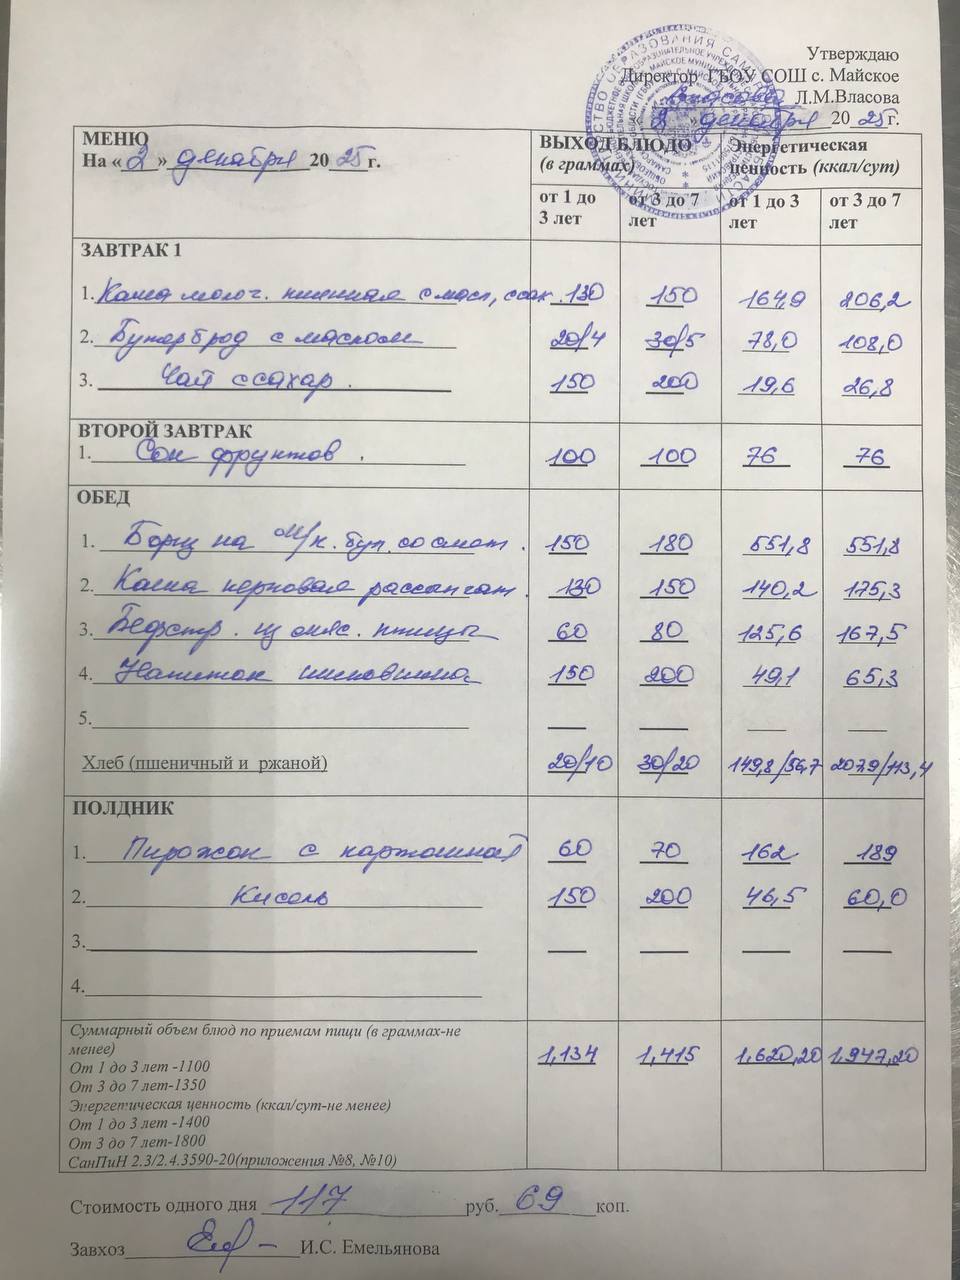 Утверждаю
Директор ГБОУ СОШ с. Майское
Л.М.Власова
«2» декабря 2025г.
МЕНЮ
На «2» декабря 2025 г.
ВЫХОД БЛЮДО
(в граммах)
Энергетическая
ценность (ккал/сут)
от 1 до 3 лет
от 3 до 7 лет
от 1 до 3 лет
от 3 до 7 лет
ЗАВТРАК 1
1. Каша молоч. пшенная с масл, с сах. 130 150 164,9 206,2
2. Бутерброд с маслом 20/4 30/5 78,0 108,0
3. Чай с сахар. 150 200 19,6 26,8
ВТОРОЙ ЗАВТРАК
1. Сок фруктов. 100 100 76 76
ОБЕД
1. Борщ на м/к. бул. со смет. 150 180 551,8 551,8
2. Каша перловая рассыпчат. 130 150 140,2 175,3
3. Бефстр. из мяс. птицы 60 80 125,6 167,5
4. Напиток шиповника 150 200 49,1 65,3
5.
Хлеб (пшеничный и ржаной) 20/10 30/20 149,8/56,7 207,9/113,4
ПОЛДНИК
1. Пирожок с картошкой 60 70 162 189
2. Кисель 150 200 46,5 60,0
3.
4.
Суммарный объем блюд по приемам пищи (в граммах-не
менее)
1,134 1,415 1,620,20 1,947,20
От 1 до 3 лет -1100
От 3 до 7 лет-1350
Энергетическая ценность (ккал/сут-не менее)
От 1 до 3 лет -1400
От 3 до 7 лет-1800
СанПиН 2.3/2.4.3590-20(приложения №8, №10)
Стоимость одного дня 117 руб. 69 коп.
Завхоз И.С. Емельянова